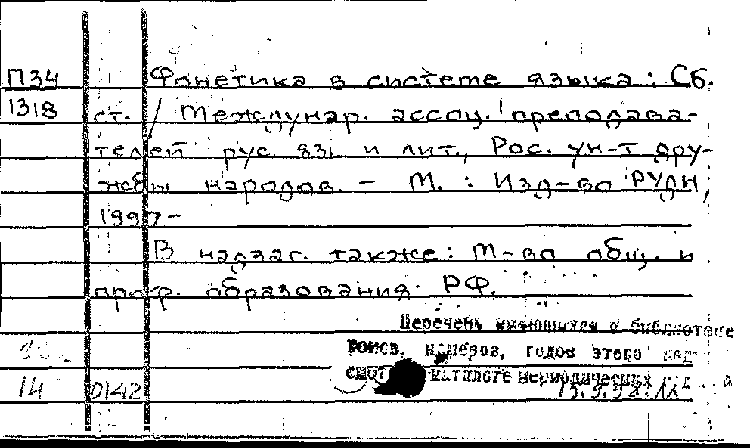 П34 Фонетика в системе языка : Сб.
1318 ст. / Междунар. ассоц. преподава-
телей рус. яз. и лит., Рос. ун-т дру-
жбы народов. - М. : Изд-во РУДН,
1997-
В надзаг. также: М-во общ. и
проф. образования РФ.
Перечень имеющихся в библиотеке
томов, номеров, годов этого
смот каталоге периодических
14 0142